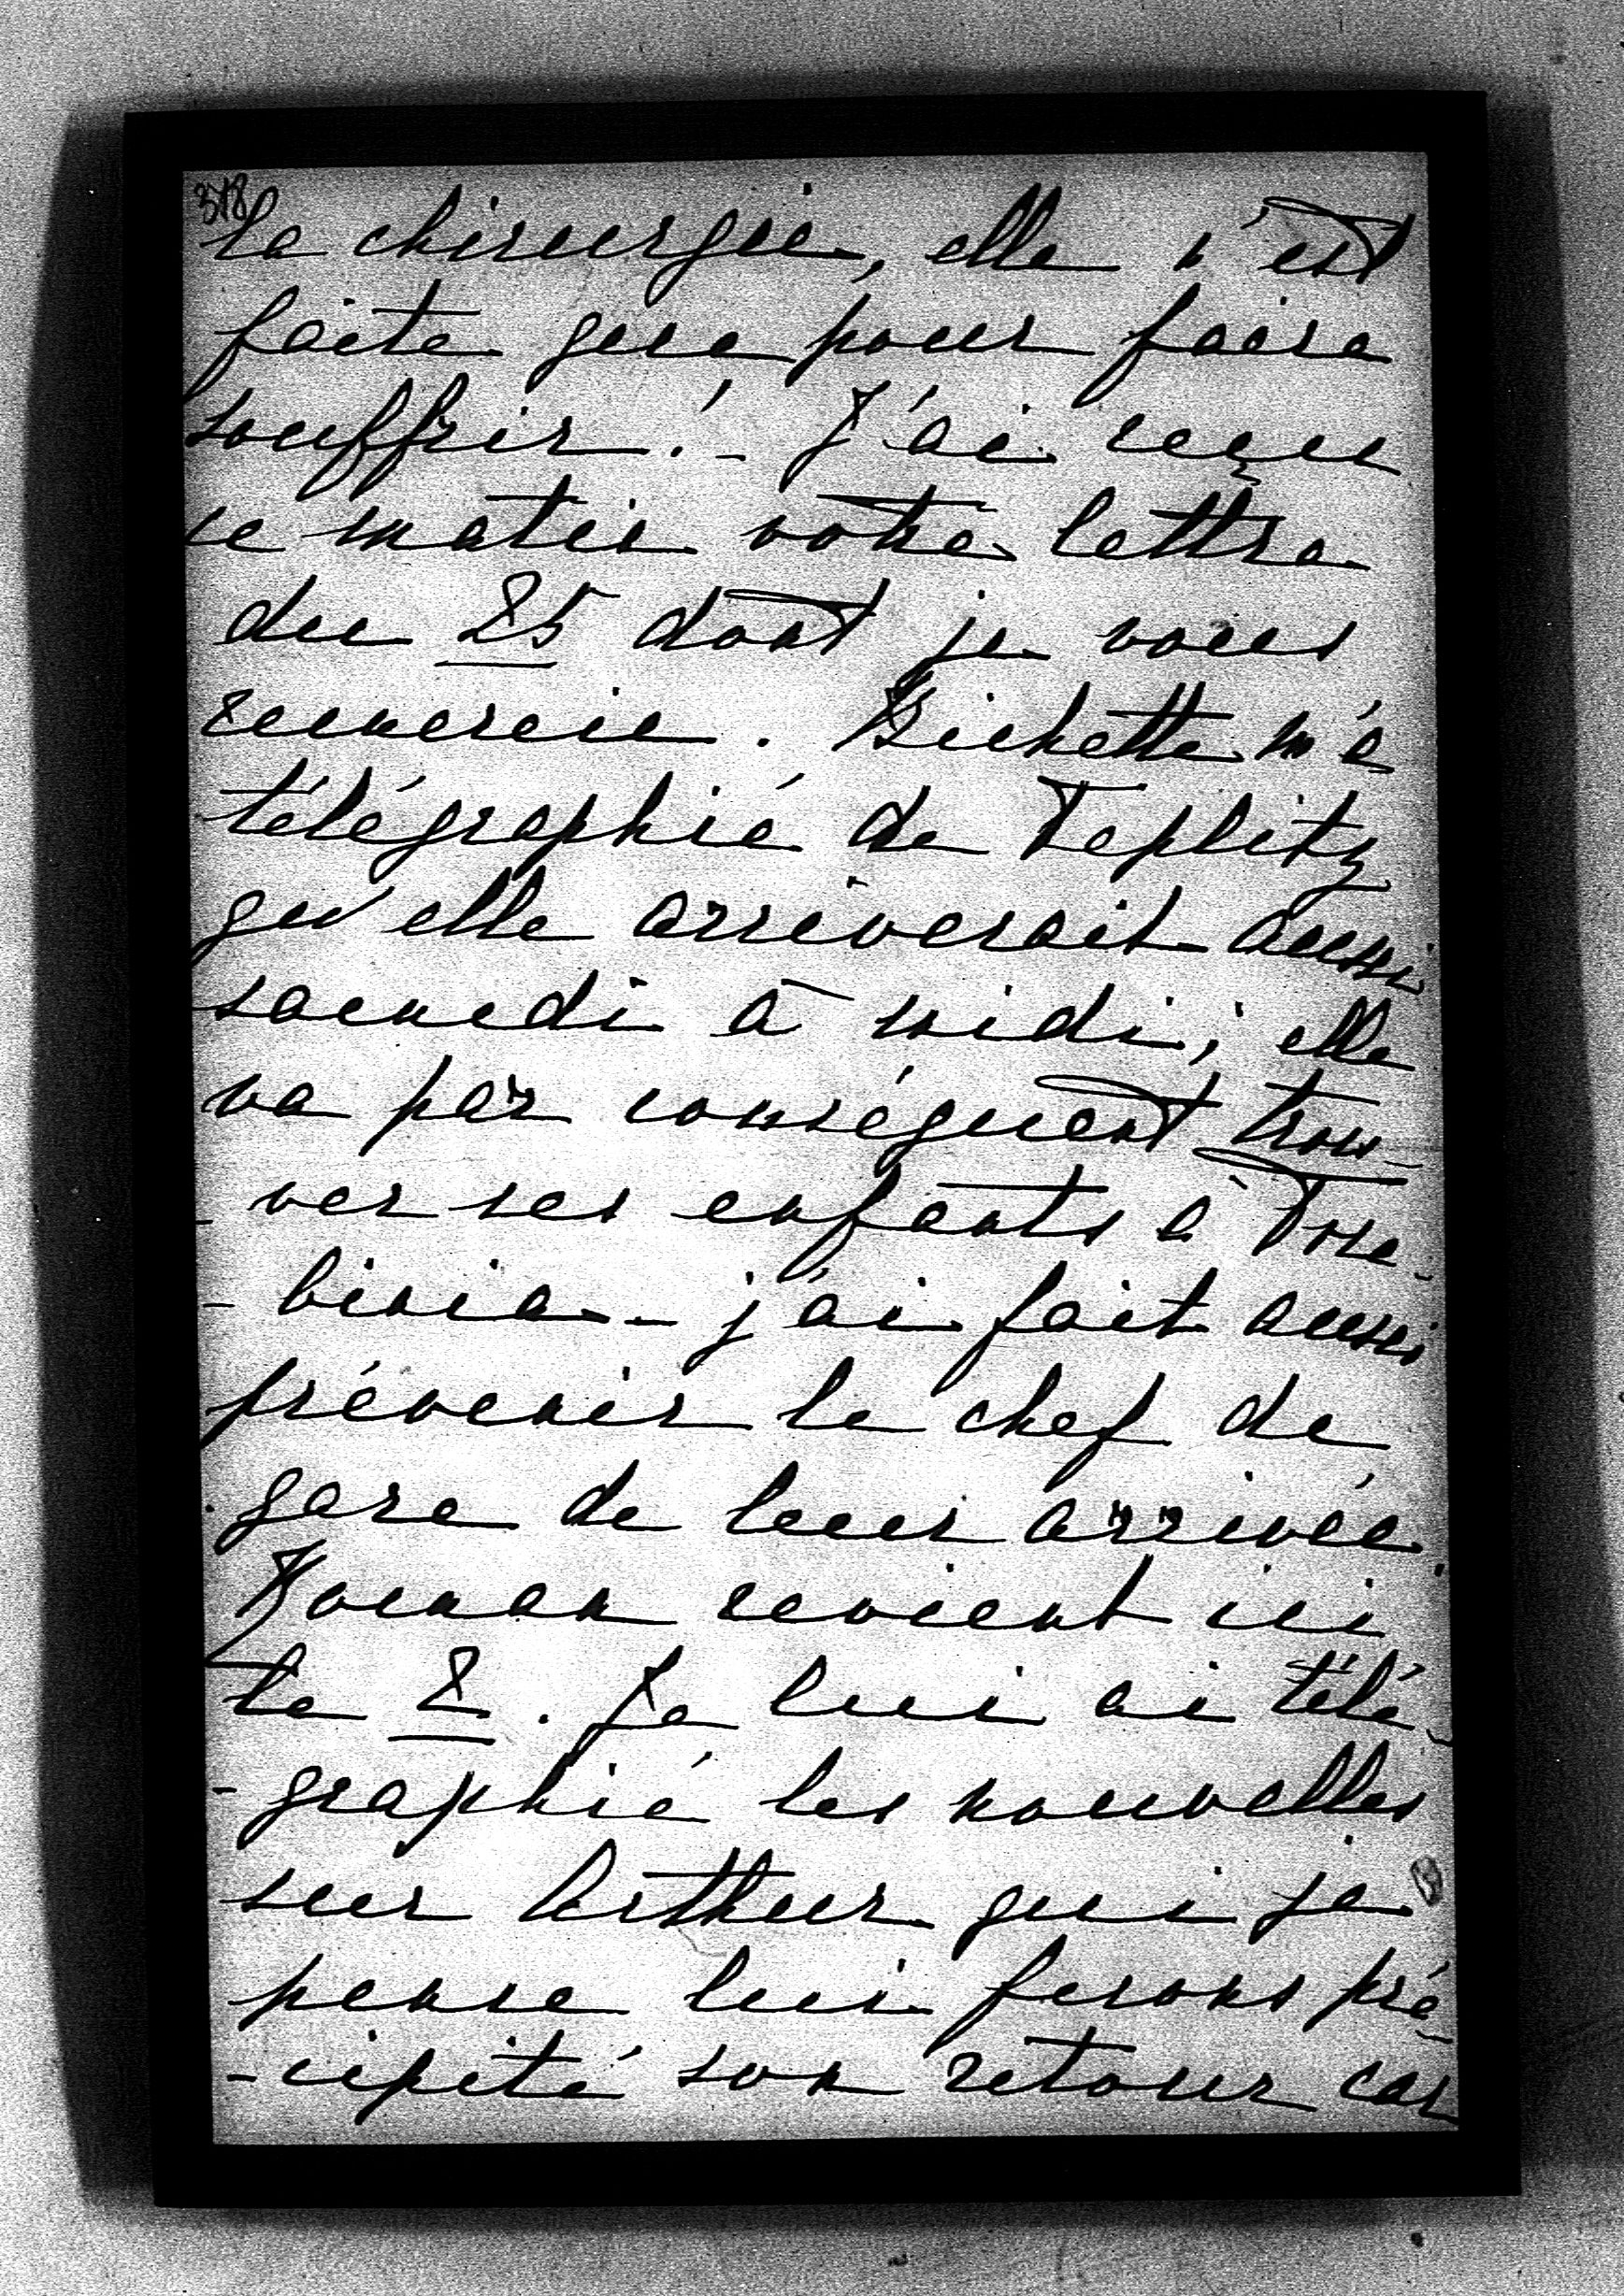 378
la chirurgie, elle n'est
faite que pour faire
souffrir! - J'ai reçu
ce matin votre lettre
du 25 dont je vous
remercie. Bichette m'a
télégraphié de Teplitz
qu'elle arriverait aussi
samedi à midi; elle
va par conséquent trou-
- ver ses enfants à Tre-
- binia - j'ai fait aussi
prévenir le chef de
gare de leur arrivée.
Roman revient ici
le 2. Je lui ai télé-
- graphié les nouvelles
sur Arthur qui je
pense lui ferons pré-
- cipité son retour car